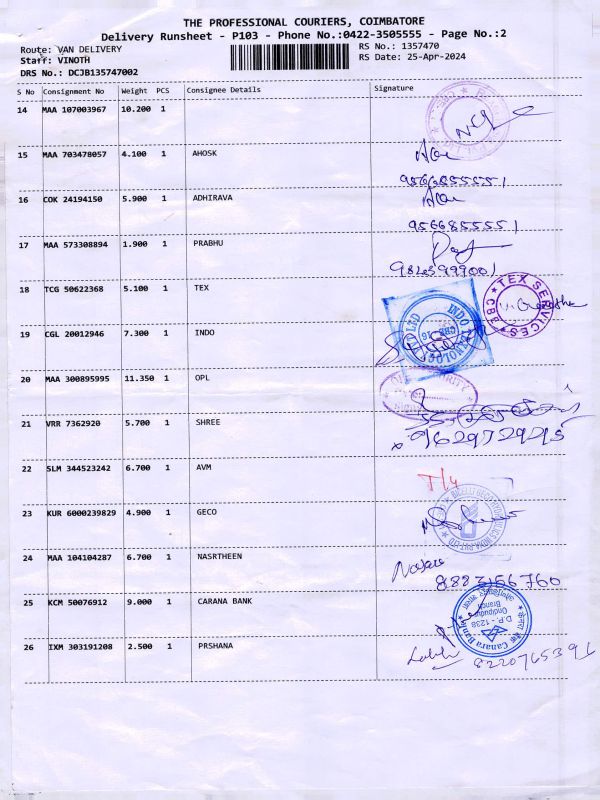 THE PROFESSIONAL COURIERS, COIMBATORE
Delivery Runsheet - P103 - Phone No.:0422-3505555 - Page No.:2
Route: VAN DELIVERY RS No.: 1357470
Staff: VINOTH RS Date: 25-Apr-2024
DRS No.: DCJB135747002
S No Consignment No Weight PCS Consignee Details Signature
14 MAA 107003967 10.200 1
15 MAA 703478057 4.100 1 AHOSK
9566855551
16 COK 24194150 5.900 1 ADHIRAVA
9566855551
17 MAA 573308894 1.900 1 PRABHU
18 TCG 50622368 5.100 1 TEX
TEX SERVICES CBB
19 CGL 20012946 7.300 1 INDO
20 MAA 300895995 11.350 1 OPL
21 VRR 7362920 5.700 1 SHREE
9629729215
22 SLM 344523242 6.700 1 AVM
23 KUR 6000239829 4.900 1 GECO
24 MAA 104104287 6.700 1 NASRTHEEN
25 KCM 50076912 9.000 1 CARANA BANK
Canara Bank
D.P. - 1238
Branch
26 IXM 303191208 2.500 1 PRSHANA
8220765391